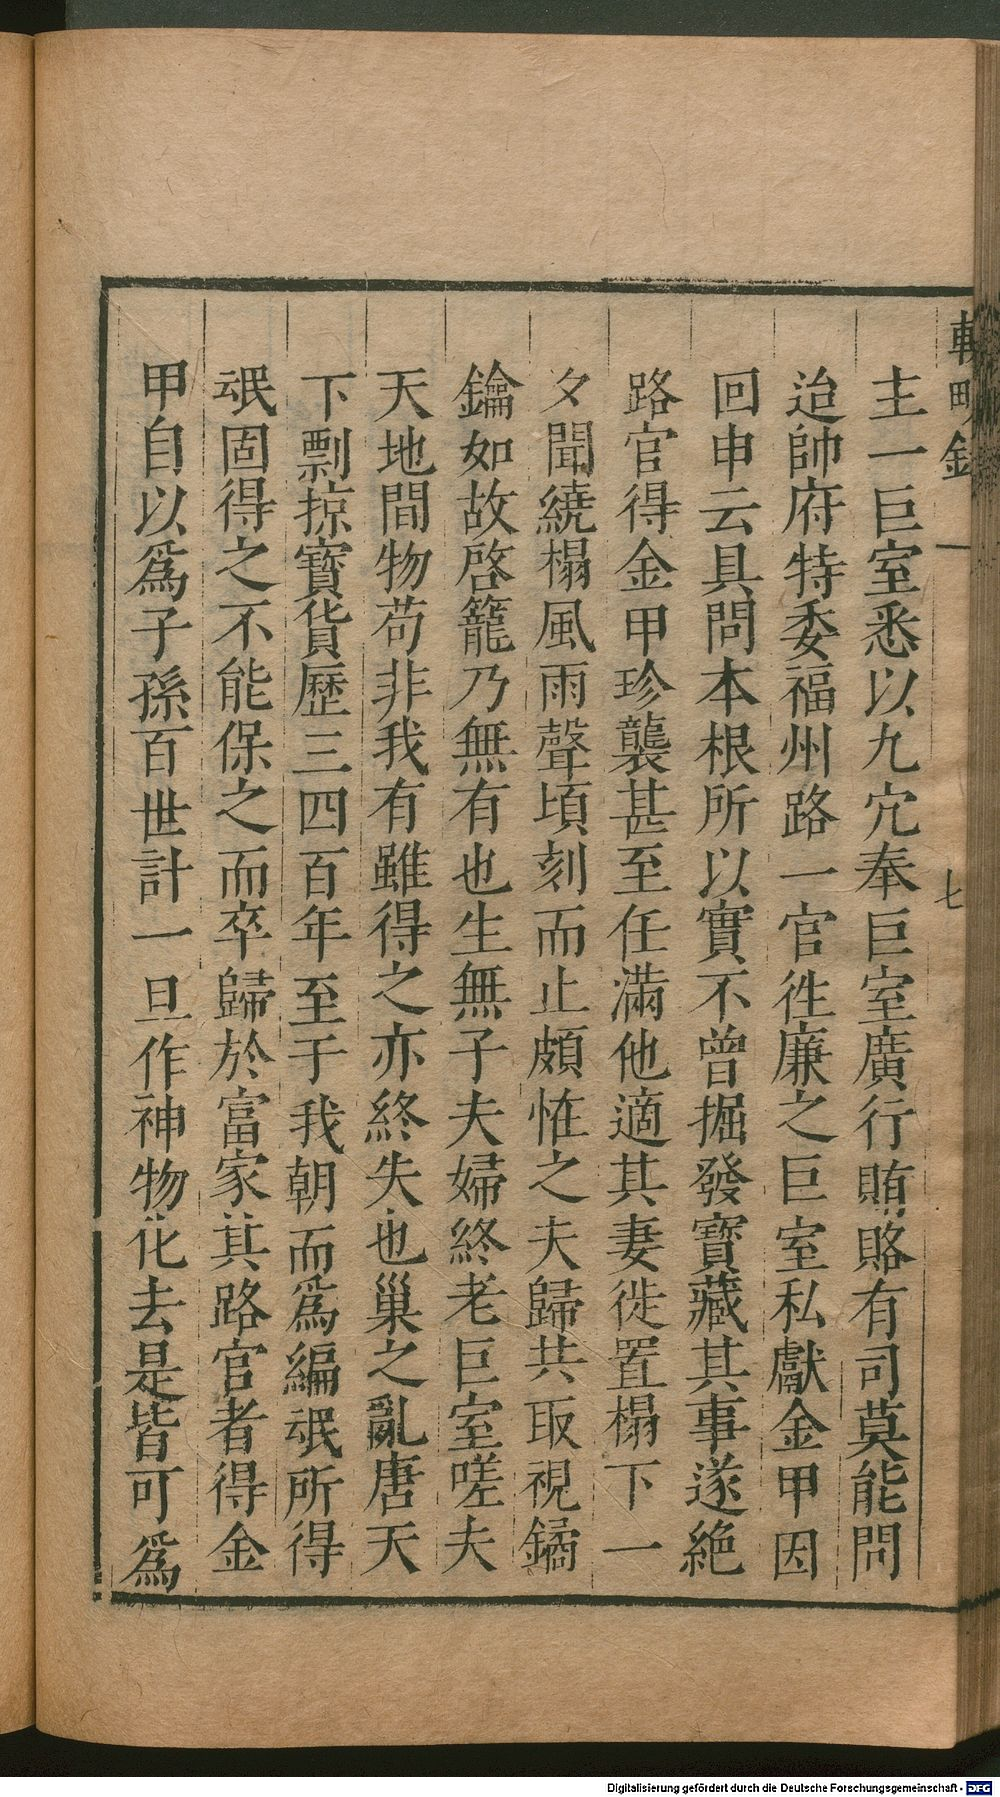 主一巨室悉以九宂奉巨室廣行賄賂有司莫能問
迨帥府特委福州路一官徃廉之巨室私獻金甲因
回申云具問本根所以實不曾掘發寶藏其事遂絶
路官得金甲珍襲甚至任滿他適其妻徙置榻下一
夕聞繞榻風雨聲頃刻而止頗恠之夫歸共取視鐍
鑰如故啓籠乃無有也生無子夫婦終老巨室嗟夫
天地間物苟非我有雖得之亦終失也巢之亂唐天
下剽掠寶貨歷三四百年至于我朝而爲編氓所得
氓固得之不能保之而卒歸於富家其路官者得金
甲自以爲子孫百世計一旦作神物化去是皆可爲
七
Digitalisierung gefördert durch die Deutsche Forschungsgemeinschaft - DFG